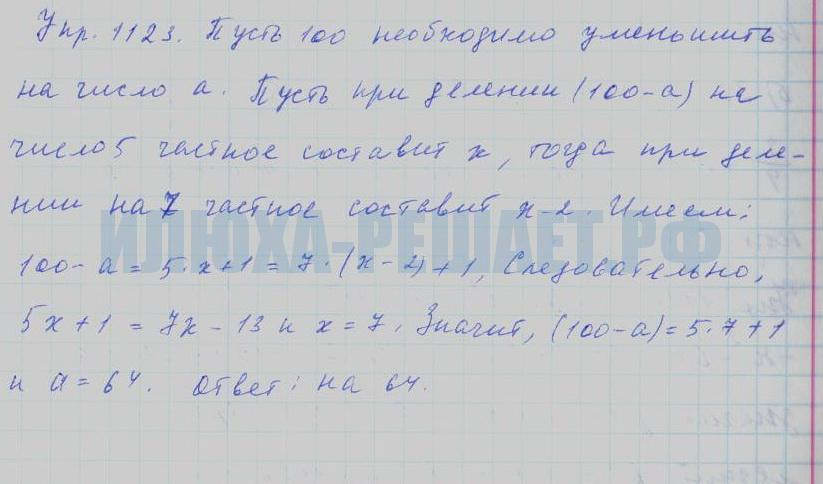 Упр. 1123. Пусть 100 необходимо уменьшить
на число а. Пусть при делении (100-а) на
число 5 частное составит х, тогда при деле-
нии на 7 частное составит х-2. Имеем:
ИЛЮХА-РЕШАЕТ.РФ
100-а = 5·х+1 = 7·(х-2)+1, Следовательно,
5х+1 = 7х-13 и х=7. Значит, (100-а)=5·7+1
и а=64. Ответ: на 64.